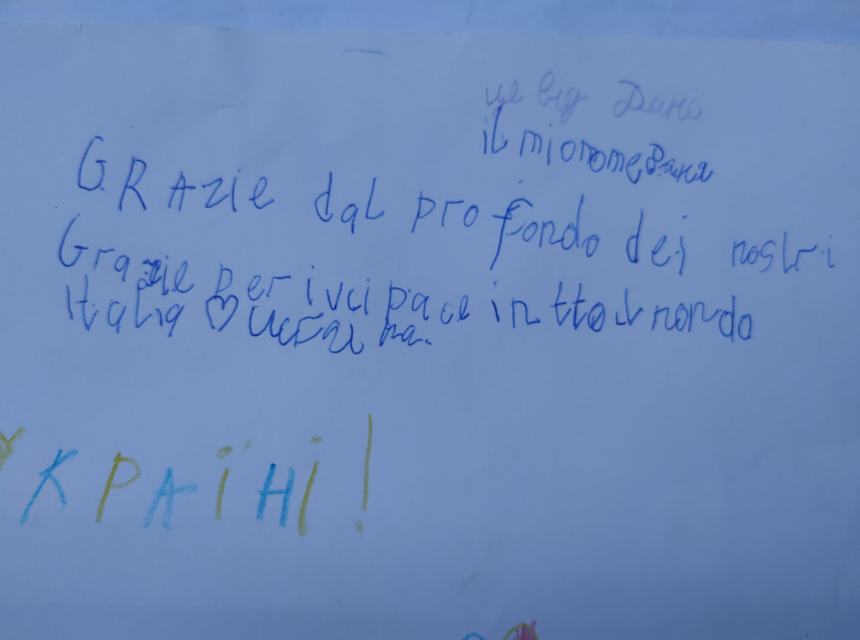 це від Дані
il mio nome Даня
GRAzie dal profondo dei nostri
Grazie per i vci pace in tto il nondo
Italia ♡ Ucraina.
УКРАЇНІ!